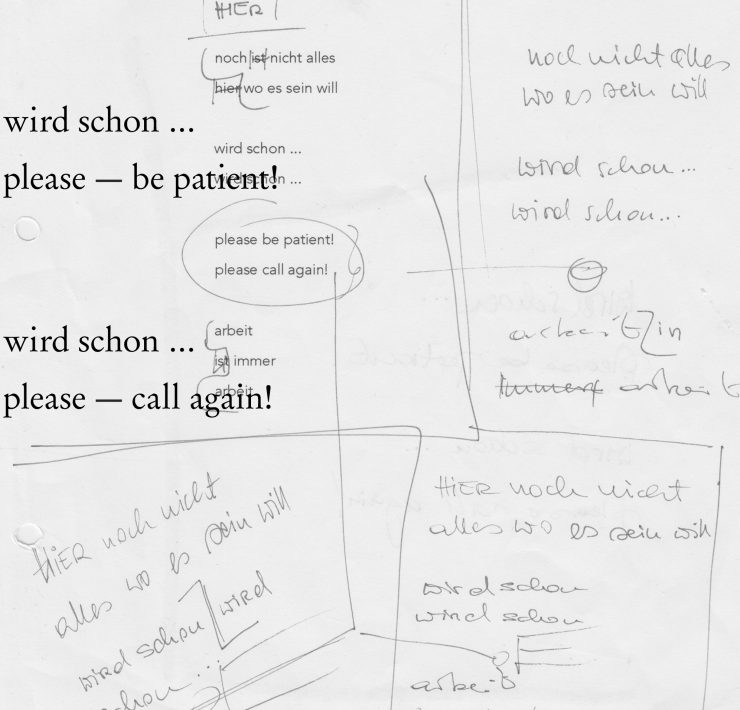 HIER
noch ist nicht alles
hier wo es sein will
wird schon ...
wird schon ...
please be patient!
please call again!
arbeit
ist immer
arbeit
wird schon ...
please — be patient!
wird schon ...
please — call again!
noch nicht alles
wo es sein will
wird schon ...
wird schon ...
arbeit in
immer arbeit
HIER noch nicht
alles wo es sein will
wird schon wird
schon ...
HIER noch nicht
alles wo es sein will
wird schon
wird schon
arbeit